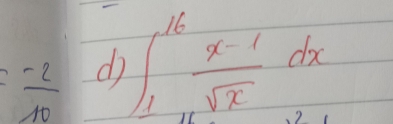 = -2/10
d) ∫₁¹⁶ (x-1)/√x dx